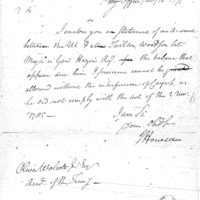 Sir
I enclose you a Statement of an account
between the US & 
Majr. & Genl Hazen's Regt the balance that
appears due him I presume cannot be
allowed without the interference of Congress as
he did not comply with the act of the 2 Nov.
1785.
I am Sir
your Obdt S
J Howell
Oliver Wolcott Jr Esqr
Audr. of the Treasy